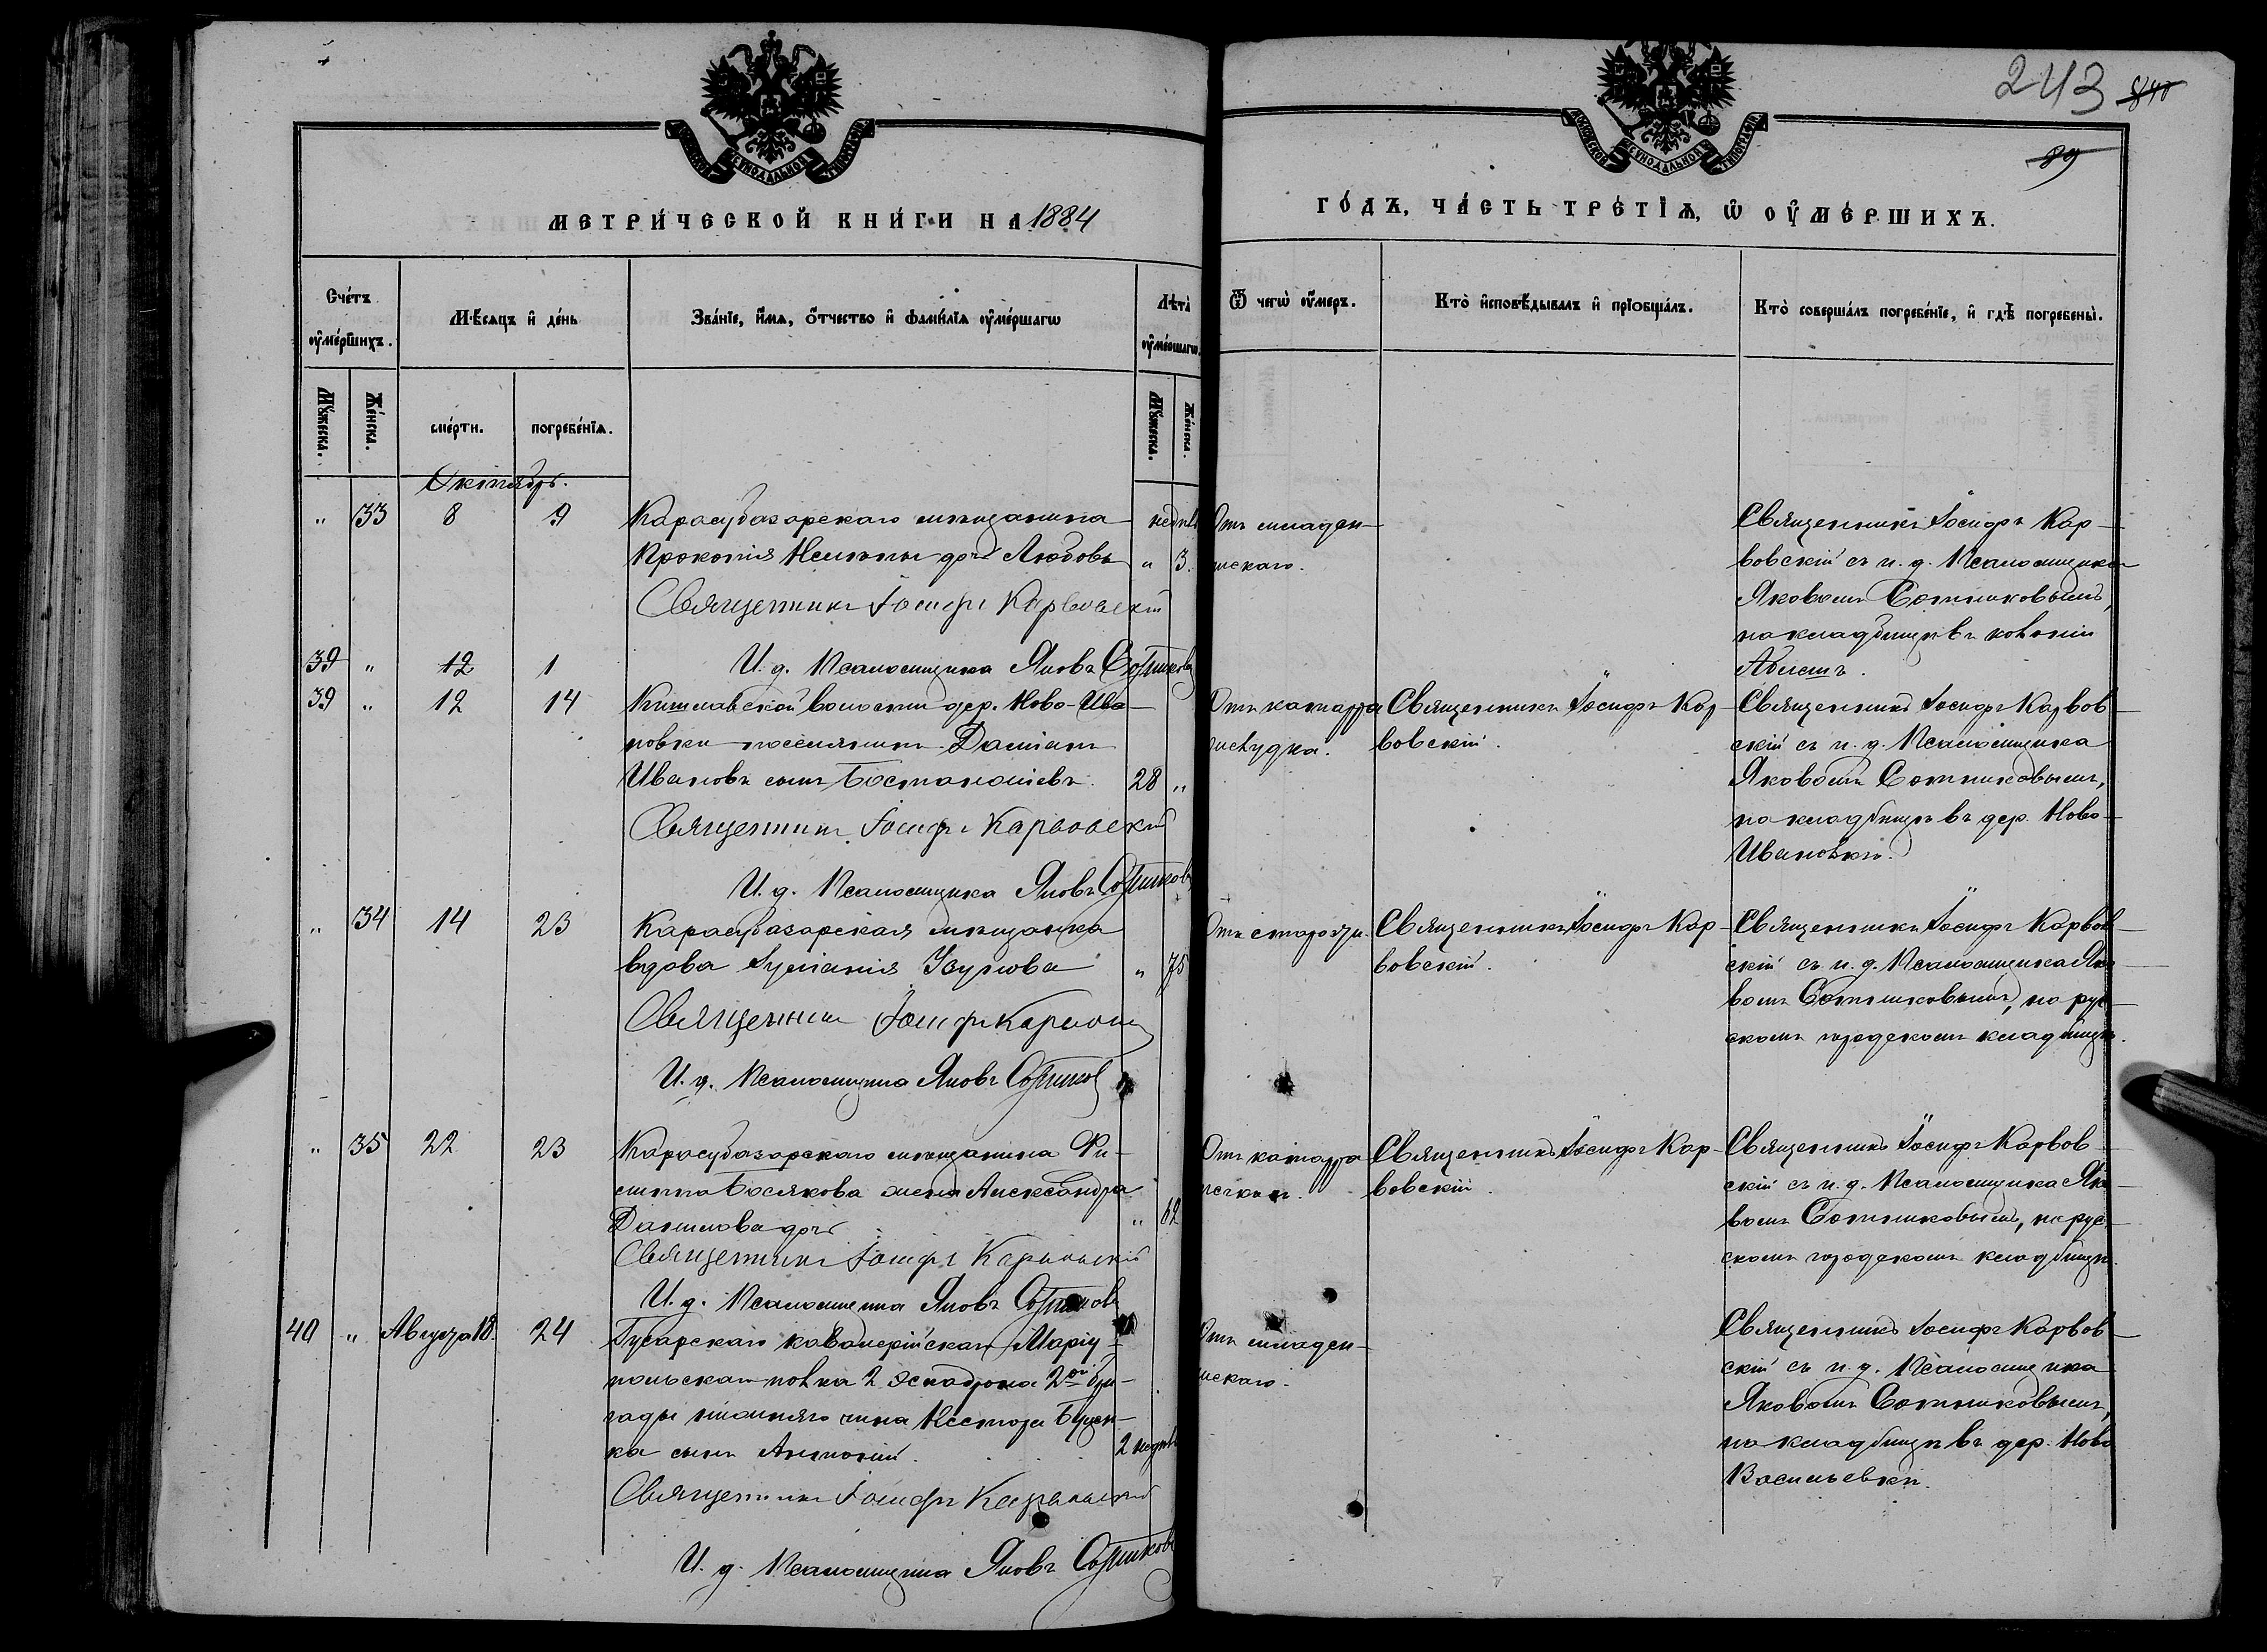 243 840
89
РОССІЙСКОЙ СѴНОДАЛЬНОЙ ТИПОГРАФІИ
МЕТРИ́ЧЕСКОЙ КНИ́ГИ НА 1884
ГО́ДЪ, ЧА́СТЬ ТРЕ́ТІѦ, Ѡ҆ ОУ҆МЕ́РШИХЪ.
Сче́тъ оу҆ме́ршихъ.
Мѣ́сѧцъ и҆ де́нь
Зва́нїе, и҆́мѧ, ѻ҆́тчество и҆ фами́лїѧ оу҆ме́ршагѡ
Лѣта̀ оу҆ме́ршагѡ.
Ѿ чегѡ̀ оу҆́меръ.
Кто̀ и҆сповѣ́дывалъ и҆ прїѡбща́лъ.
Кто̀ соверша́лъ погребе́нїе, и҆ гдѣ̀ погребены̀.
Мꙋ́жеска.
Же́нска.
сме́рти.
погребе́нїѧ.
Мꙋ́жеска.
Же́нска.
Октябрь.
" 33 8 9 Карасубазарскаго мѣщанина недѣл
Прокопія дочь Любовь " 3.
Священникъ Іосифъ Карвовскій
И. д. Псаломщика Яковъ Сотниковъ
Отъ младен-
ческаго.
Священникъ Іосифъ Кар-
вовскій съ и. д. Псаломщика
Яковомъ Сотниковымъ,
на кладбищѣ въ колоніи
39 " 12 1
39 " 12 14 Кишлавской волости дер. Ново-Ива-
новки поселянинъ Даміанъ
Ивановъ сынъ Бостанжіевъ. 28 "
Священникъ Іосифъ Карвовскій
И. д. Псаломщика Яковъ Сотниковъ
Отъ катарра
желудка.
Священникъ Іосифъ Кар-
вовскій.
Священникъ Іосифъ Карвов-
скій съ и. д. Псаломщика
Яковомъ Сотниковымъ,
на кладбищѣ въ дер. Ново-
Ивановкѣ.
" 34 14 23 Карасубазарская мѣщанка
вдова " 75
Священникъ Іосифъ Карвовскій
И. д. Псаломщика Яковъ Сотниковъ
Отъ старости.
Священникъ Іосифъ Кар-
вовскій.
Священникъ Іосифъ Карвов-
скій съ и. д. Псаломщика Яко-
вомъ Сотниковымъ, на рус-
скомъ городскомъ кладбищѣ.
" 35 22 23 Карасубазарскаго мѣщанина Фи-
липпа Босякова жена Александра
Данилова дочь " 62
Священникъ Іосифъ Карвовскій
И. д. Псаломщика Яковъ Сотниковъ
Отъ катарра
легкихъ.
Священникъ Іосифъ Кар-
вовскій.
Священникъ Іосифъ Карвов-
скій съ и. д. Псаломщика Яко-
вомъ Сотниковымъ, на рус-
скомъ городскомъ кладбищѣ.
40 " Августа 18. 24 Гусарскаго кавалерійскаго Маріу-
польскаго полка 2 эскадрона 2ой бри-
гады нижняго чина Нестора Буцен-
ка сынъ Антоній. 2 недѣл
Священникъ Іосифъ Карвовскій
И. д. Псаломщика Яковъ Сотниковъ
Отъ младен-
ческаго.
Священникъ Іосифъ Карвов-
скій съ и. д. Псаломщика
Яковомъ Сотниковымъ,
на кладбищѣ въ дер. Ново
Васильевкѣ.